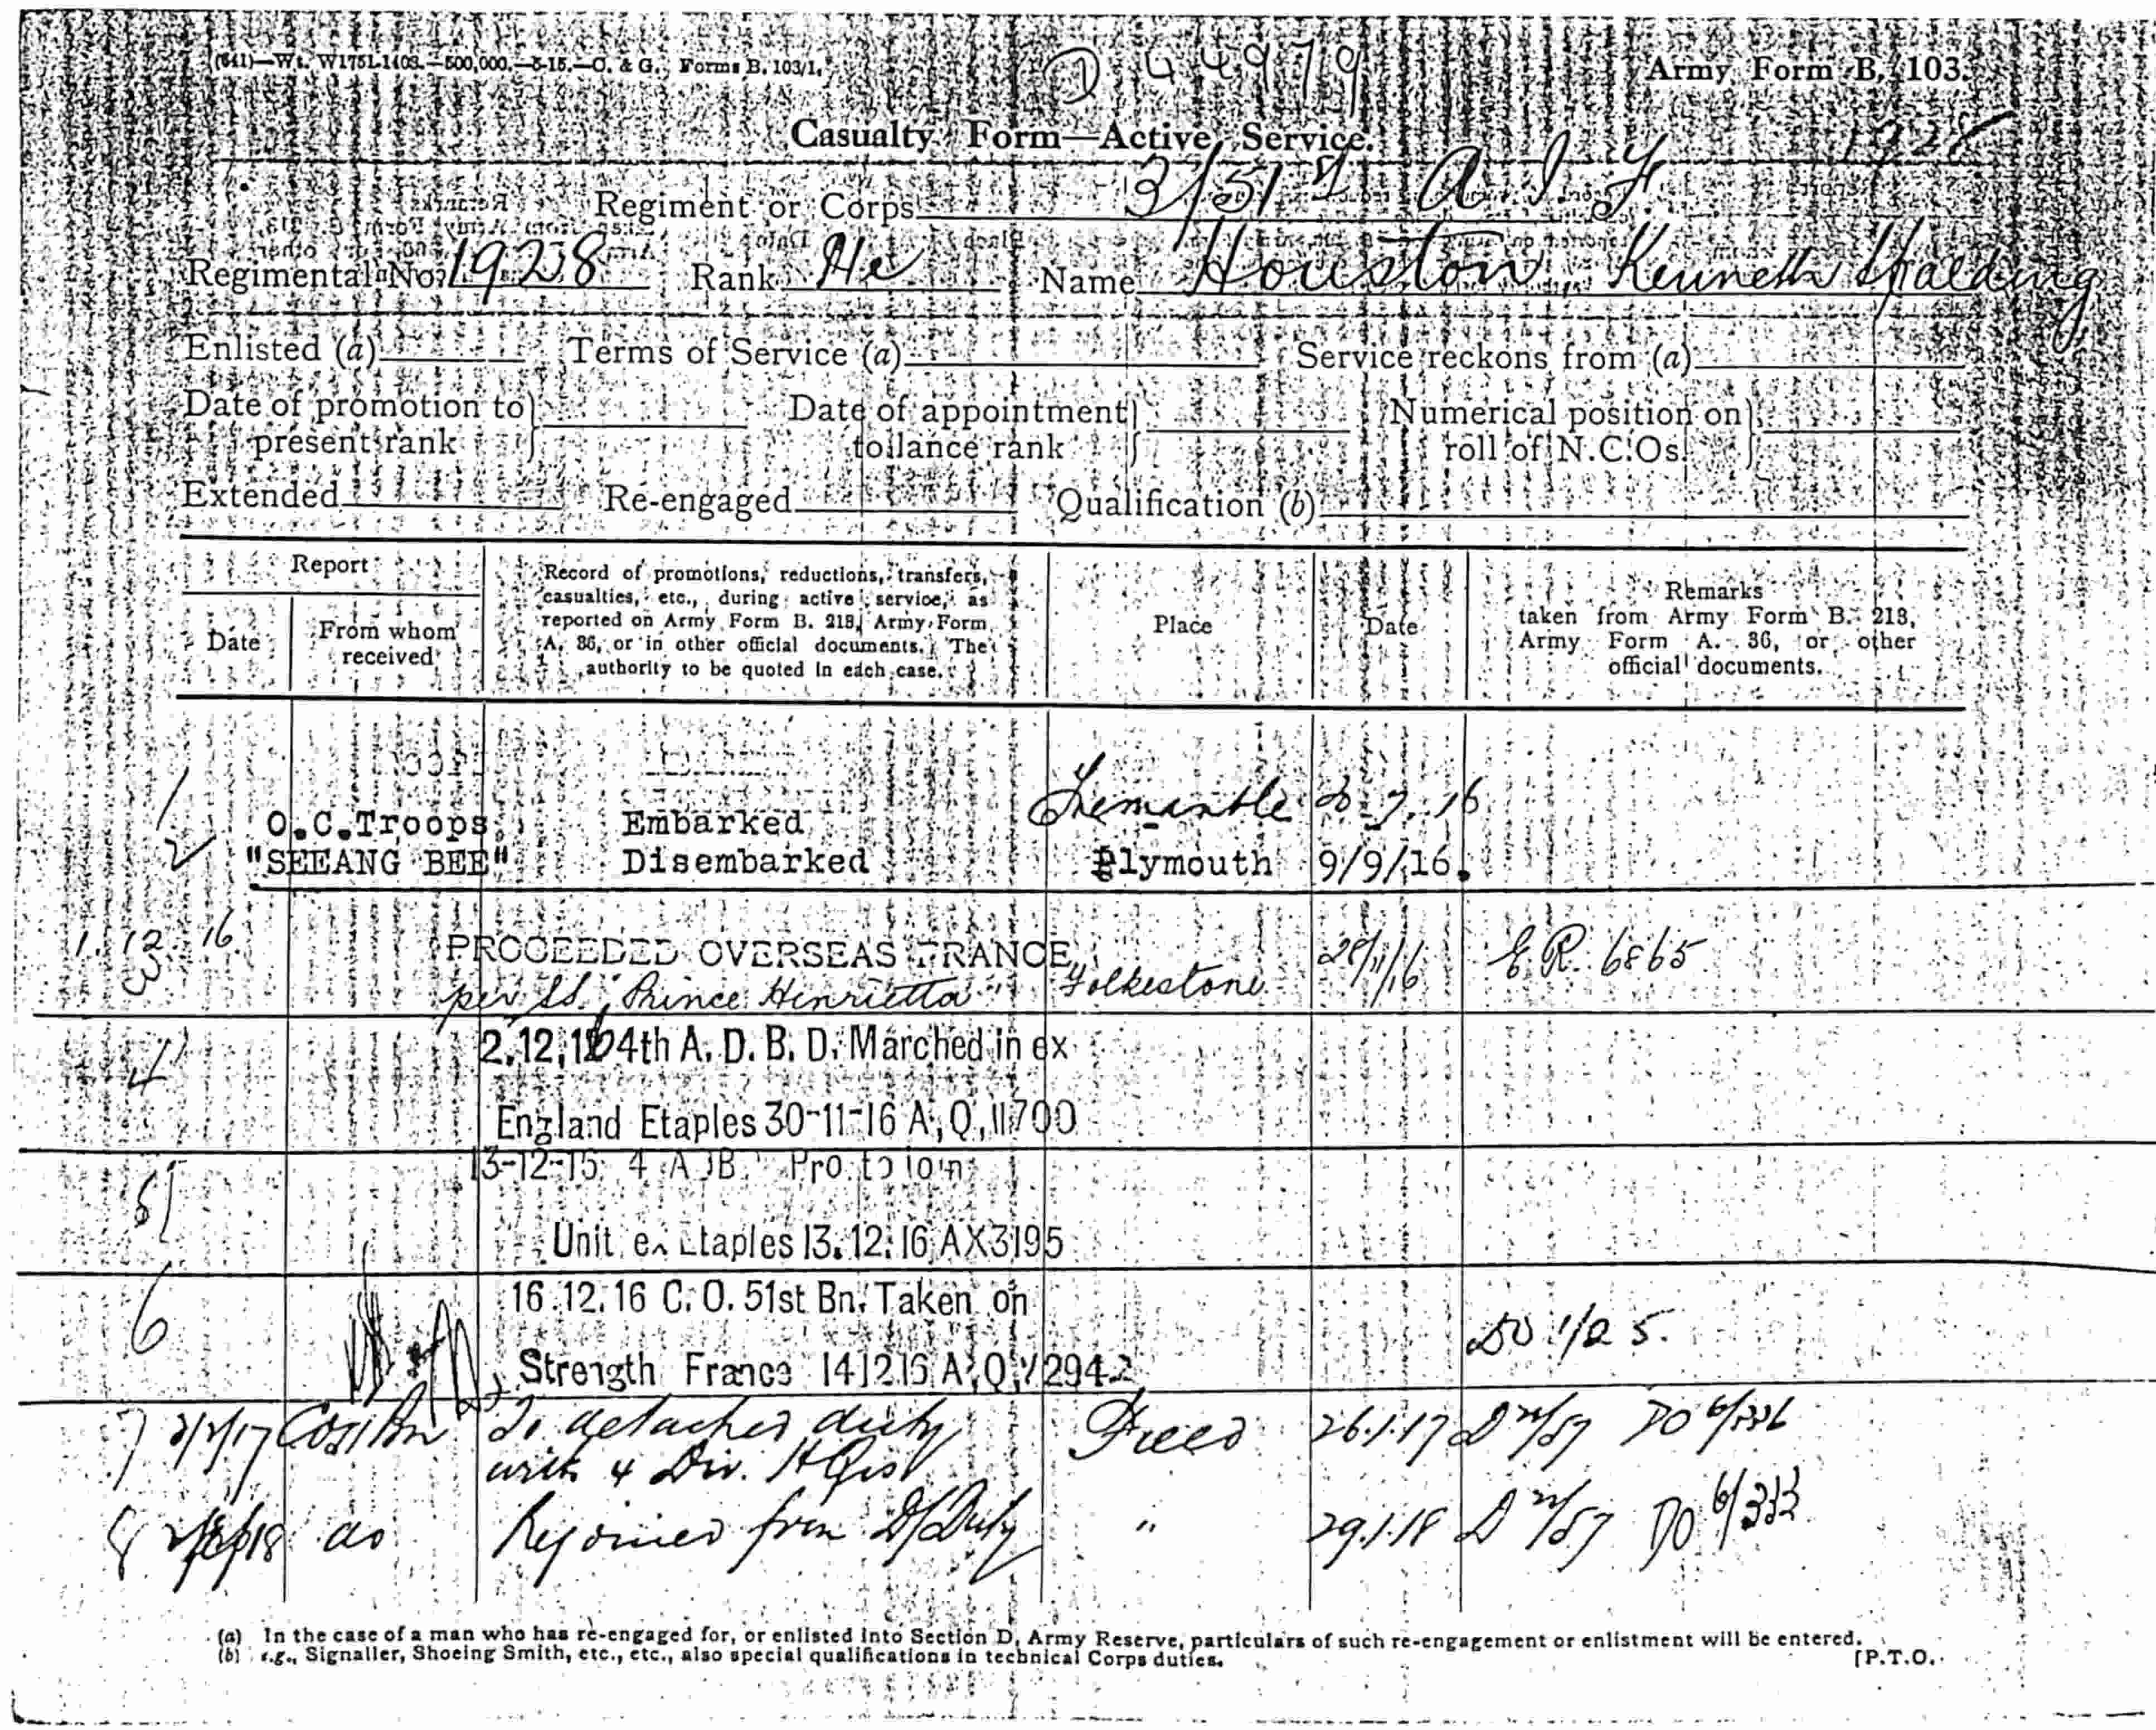 (641)—Wt. W1751-1403.—500,000.—8-15.—C. & G. Forms B. 103/1.
D 44979
Army Form B. 103.
Casualty Form—Active Service.
Regiment or Corps 3/51st A. I. F.
Regimental No. 1928 Rank Pte Name Houston, Kenneth Spalding
Enlisted (a) Terms of Service (a) Service reckons from (a)
Date of promotion to present rank } Date of appointment to lance rank } Numerical position on roll of N.C.Os. }
Extended Re-engaged Qualification (b)
Report
Date
From whom received
Record of promotions, reductions, transfers,
casualties, etc., during active service, as
reported on Army Form B. 213, Army Form
A. 36, or in other official documents. The
authority to be quoted in each case.
Place
Date
Remarks
taken from Army Form B. 213,
Army Form A. 36, or other
official documents.
1 O.C.Troops Embarked Fremantle 7.16
2 "SEEANG BEE" Disembarked Plymouth 9/9/16.
1.12.16 PROCEEDED OVERSEAS FRANCE
3 per SS. "Prince Henrietta" Folkestone 28/11/16 E.R. 6865
4 2.12.16 4th A. D. B. D. Marched in ex
England Etaples 30-11-16 A, Q, 11700
5 4 A Pro. to join
Unit ex Etaples 13.12.16 AX3195
6 16.12.16 C. O. 51st Bn. Taken on
Strength France 141216 A, Q, 2942 DO 1/25.
7 2/2/17 CO51Bn To detached duty Field 26.1.17 D 22/57 DO 6/336
with 4 Div. HQrs
8 do Rejoined from D/Duty " 29.1.18 D 22/57 DO 6/333
(a) In the case of a man who has re-engaged for, or enlisted into Section D, Army Reserve, particulars of such re-engagement or enlistment will be entered.
(b) e.g., Signaller, Shoeing Smith, etc., etc., also special qualifications in technical Corps duties. [P.T.O.